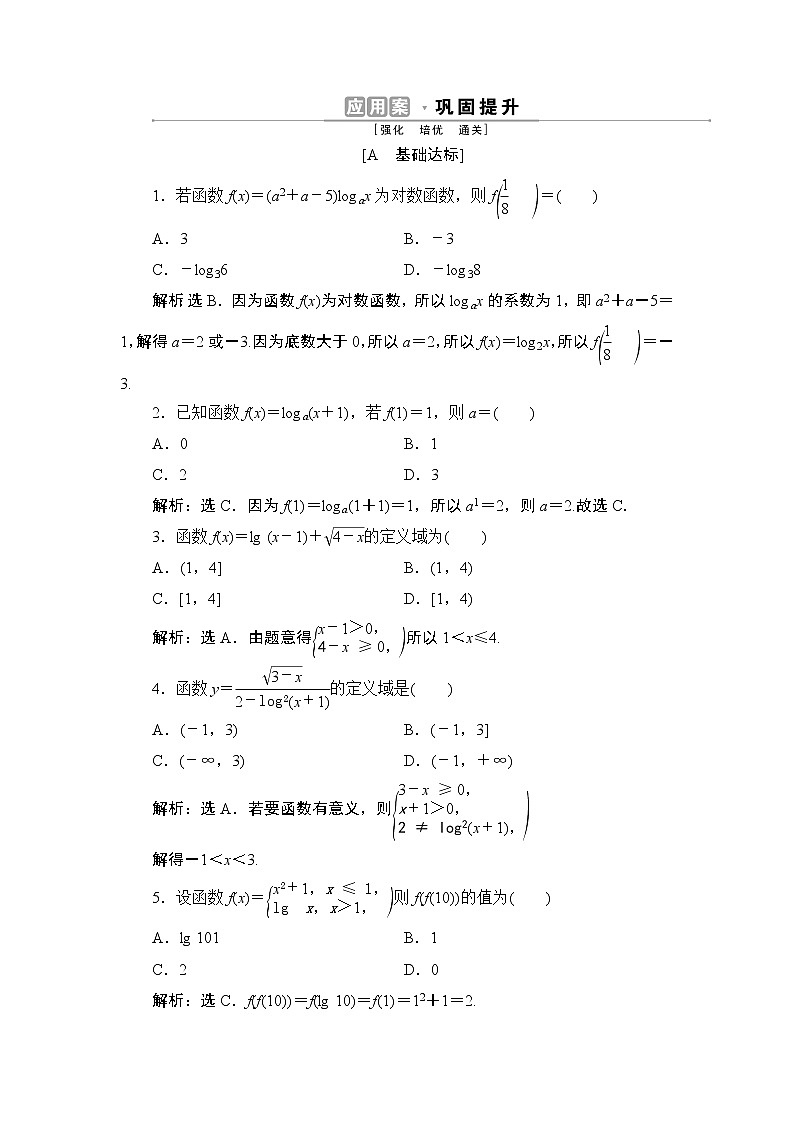 应用案·巩固提升
[强化 培优 通关]
[A 基础达标]
1．若函数 f(x)＝(a²＋a－5)logₐx 为对数函数，则 f(1/8)＝( )
A．3 B．－3
C．－log₃6 D．－log₃8
解析 选 B．因为函数 f(x)为对数函数，所以 logₐx 的系数为 1，即 a²＋a－5＝
1，解得 a＝2 或－3.因为底数大于 0，所以 a＝2，所以 f(x)＝log₂x，所以 f(1/8)＝－
3.
2．已知函数 f(x)＝logₐ(x＋1)，若 f(1)＝1，则 a＝( )
A．0 B．1
C．2 D．3
解析：选 C．因为 f(1)＝logₐ(1＋1)＝1，所以 a¹＝2，则 a＝2.故选 C．
3．函数 f(x)＝lg (x－1)＋√(4－x)的定义域为( )
A．(1，4] B．(1，4)
C．[1，4] D．[1，4)
解析：选 A．由题意得{x－1＞0，4－x ≥ 0，)所以 1＜x≤4.
4．函数 y＝√(3－x)/(2－log²(x＋1))的定义域是( )
A．(－1，3) B．(－1，3]
C．(－∞，3) D．(－1，＋∞)
解析：选 A．若要函数有意义，则{3－x ≥ 0，x＋1＞0，2 ≠ log²(x＋1)，)
解得－1＜x＜3.
5．设函数 f(x)＝{x²＋1，x ≤ 1，lg x，x＞1，)则 f(f(10))的值为( )
A．lg 101 B．1
C．2 D．0
解析：选 C．f(f(10))＝f(lg 10)＝f(1)＝1²＋1＝2.